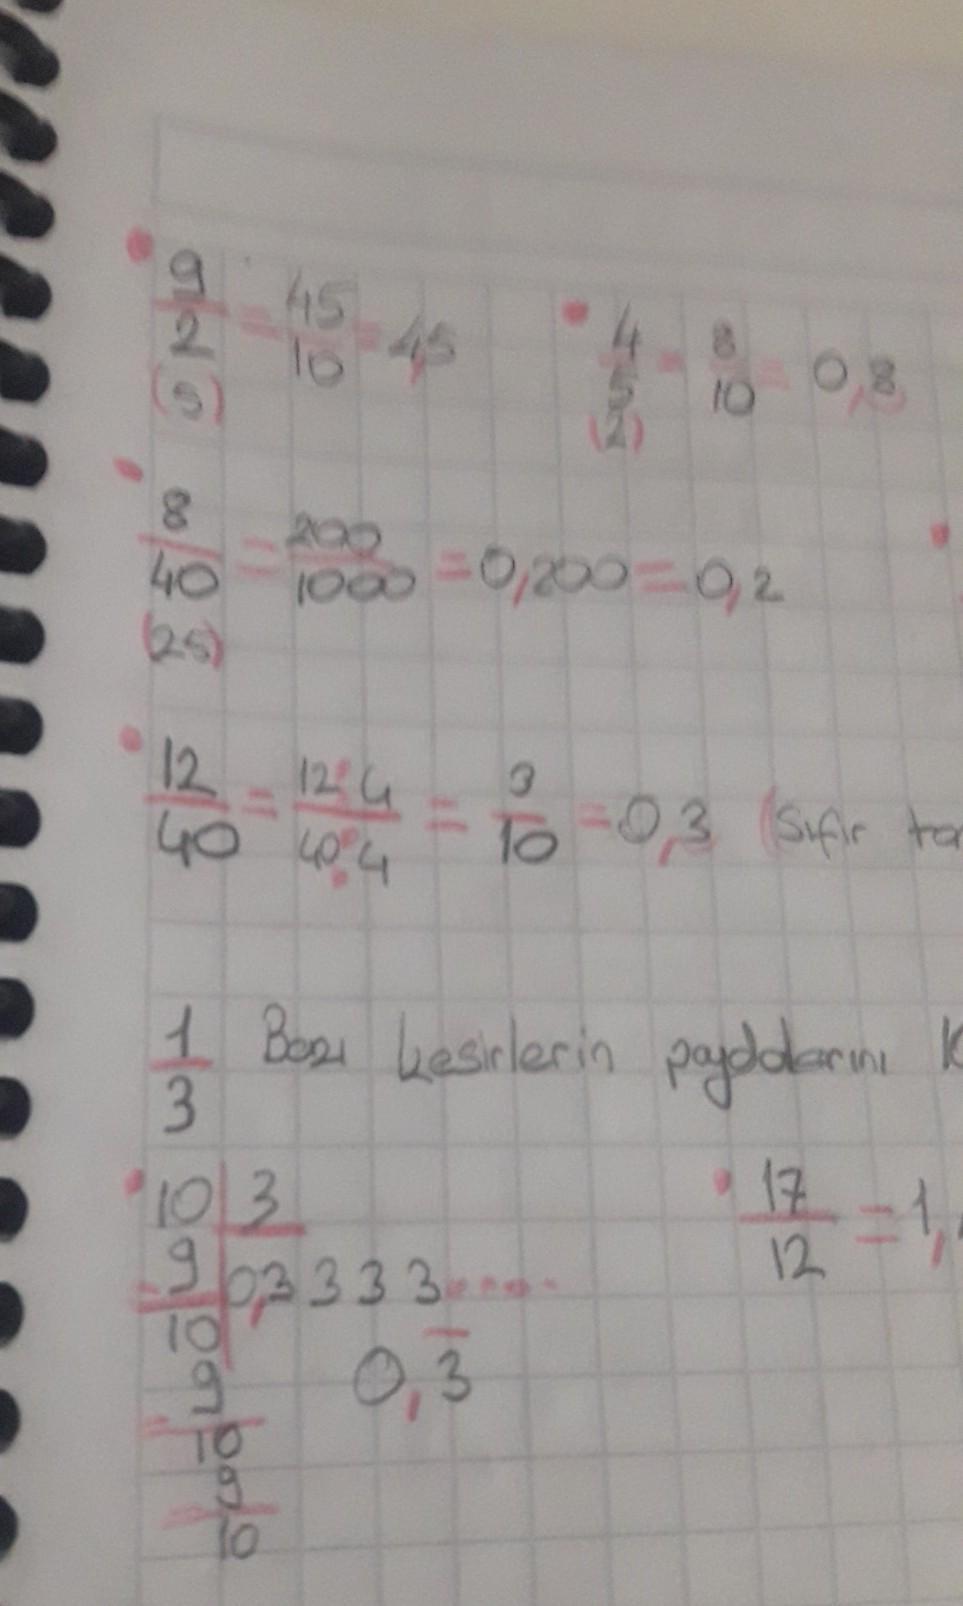 9/2 = 45/10 = 4,5
(5)
4/5 = 8/10 = 0,8
(2)
8/40 = 200/1000 = 0,200 = 0,2
(25)
12/40 = 12:4/40:4 = 3/10 = 0,3 (Sıfır
1/3 Bazı kesirlerin paydalarını
10 | 3
- 9 | 0,3333....
10
0,3̅
- 9
10
- 9
10
17/12 = 1,